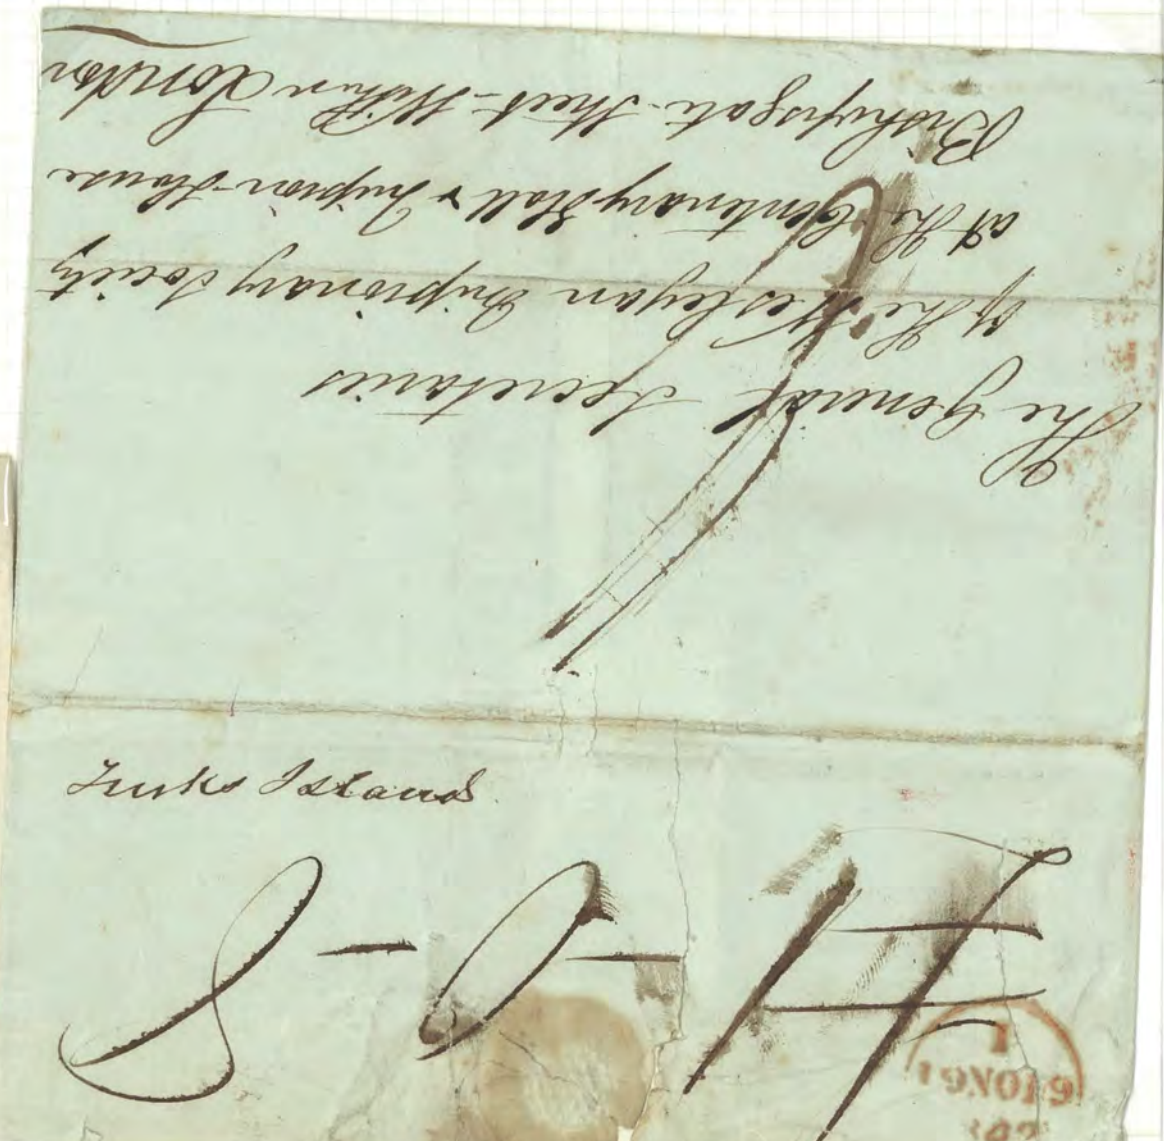 The General Secretaries
of the Wesleyan Missionary Society
at the Centenary Hall & Mission House
Bishopsgate Street Within London
Turks Island
19NO19